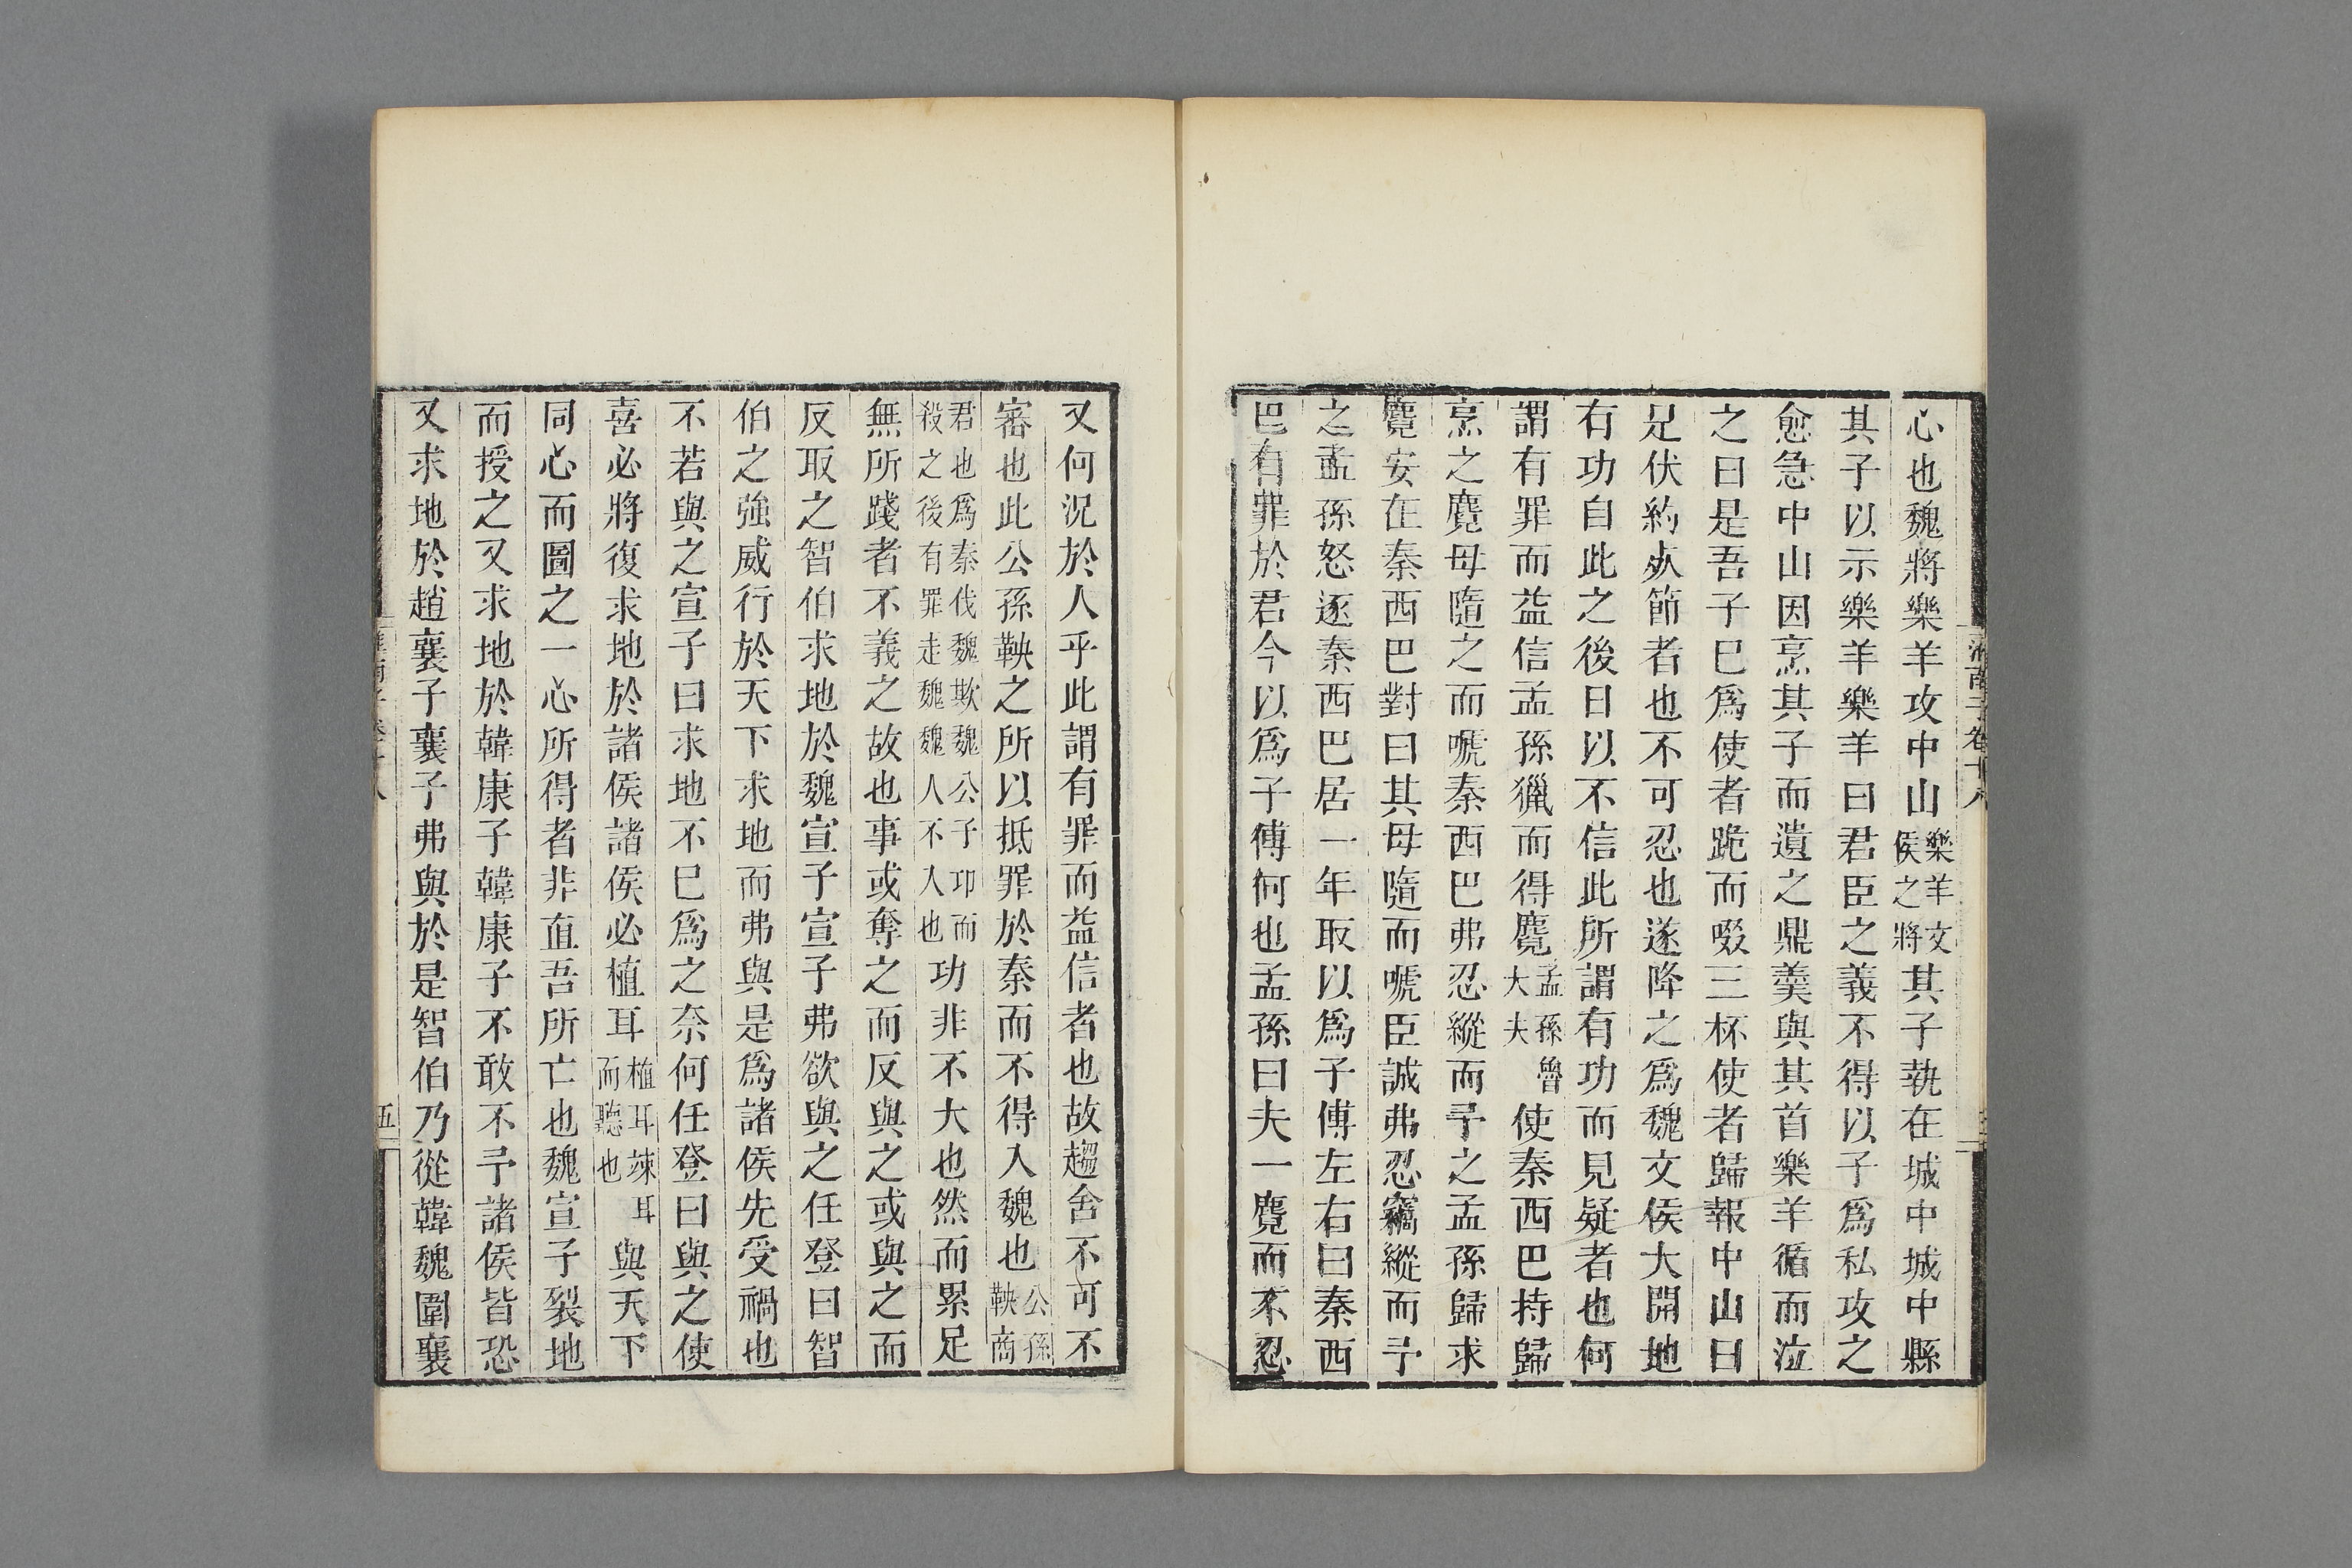 淮南子卷十八
心也魏將樂羊攻中山樂羊文侯之將其子執在城中城中縣
其子以示樂羊樂羊曰君臣之義不得以子爲私攻之
愈急中山因烹其子而遺之鼎羹與其首樂羊循而泣
之曰是吾子巳爲使者跪而啜三杯使者歸報中山曰
是伏約奴節者也不可忍也遂降之爲魏文侯大開地
有功自此之後日以不信此所謂有功而見疑者也何
謂有罪而益信孟孫獵而得麑孟孫魯大夫使秦西巴持歸
烹之麑母隨之而嗁秦西巴弗忍縱而予之孟孫歸求
麑安在秦西巴對曰其母隨而嗁臣誠弗忍竊縱而予
之孟孫怒逐秦西巴居一年取以爲子傅左右曰秦西
巴有罪於君今以爲子傅何也孟孫曰夫一麑而不忍
又何況於人乎此謂有罪而益信者也故趨舍不可不
審也此公孫鞅之所以抵罪於秦而不得入魏也公孫鞅商
君也爲秦伐魏欺魏公子卬而殺之後有罪走魏魏人不入也功非不大也然而累足
無所踐者不義之故也事或奪之而反與之或與之而
反取之智伯求地於魏宣子宣子弗欲與之任登曰智
伯之強威行於天下求地而弗與是爲諸侯先受禍也
不若與之宣子曰求地不巳爲之奈何任登曰與之使
喜必將復求地於諸侯諸侯必植耳植耳竦耳而聽也與天下
同心而圖之一心所得者非直吾所亡也魏宣子裂地
而授之又求地於韓康子韓康子不敢不予諸侯皆恐
又求地於趙襄子襄子弗與於是智伯乃從韓魏圍襄
淮南子卷十八
五